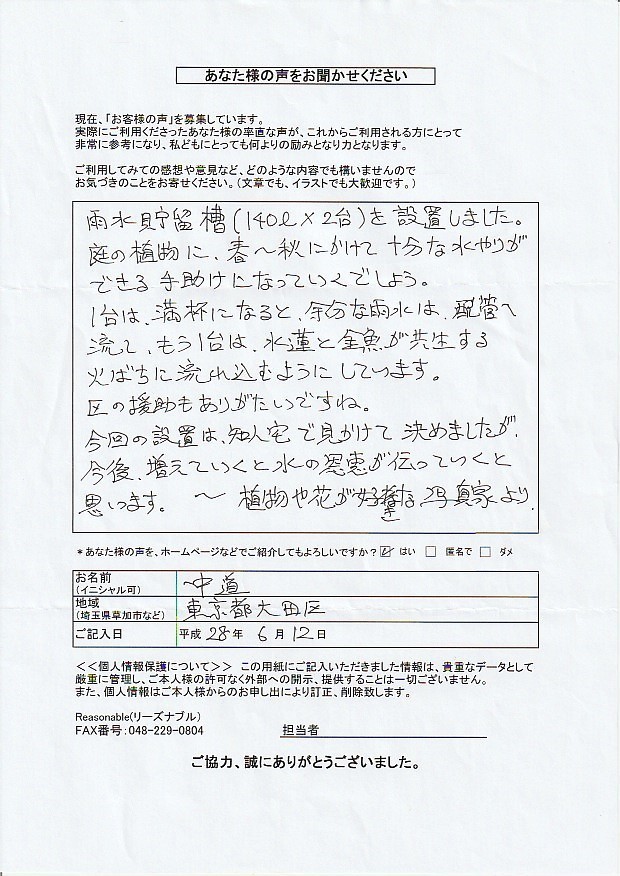 あなた様の声をお聞かせください
現在、「お客様の声」を募集しています。
実際にご利用くださったあなた様の率直な声が、これからご利用される方にとって
非常に参考になり、私どもにとっても何よりの励みとなり力となります。
ご利用してみての感想や意見など、どのような内容でも構いませんので
お気づきのことをお寄せください。(文章でも、イラストでも大歓迎です。)
雨水貯留槽(140ℓ×2台)を設置しました。
庭の植物に、春～秋にかけて十分な水やりが
できる手助けになっていくでしょう。
1台は、満杯になると、余分な雨水は、配管へ
流し、もう1台は、水蓮と金魚が共生する
火ばちに流れ込むようにしています。
区の援助もありがたいですね。
今回の設置は、知人宅で見かけて決めましたが、
今後、増えていくと水の恩恵が伝っていくと
思います。 ～植物や花が好きな写真家より.
*あなた様の声を、ホームページなどでご紹介してもよろしいですか? ☑ はい □ 匿名で □ ダメ
お名前
(イニシャル可) 中道
地域
(埼玉県草加市など) 東京都大田区
ご記入日 平成 28 年 6 月 12 日
<<個人情報保護について>> この用紙にご記入いただきました情報は、貴重なデータとして
厳重に管理し、ご本人様の許可なく外部への開示、提供することは一切ございません。
また、個人情報はご本人様からのお申し出により訂正、削除致します。
Reasonable(リーズナブル)
FAX番号:048-229-0804 担当者
ご協力、誠にありがとうございました。